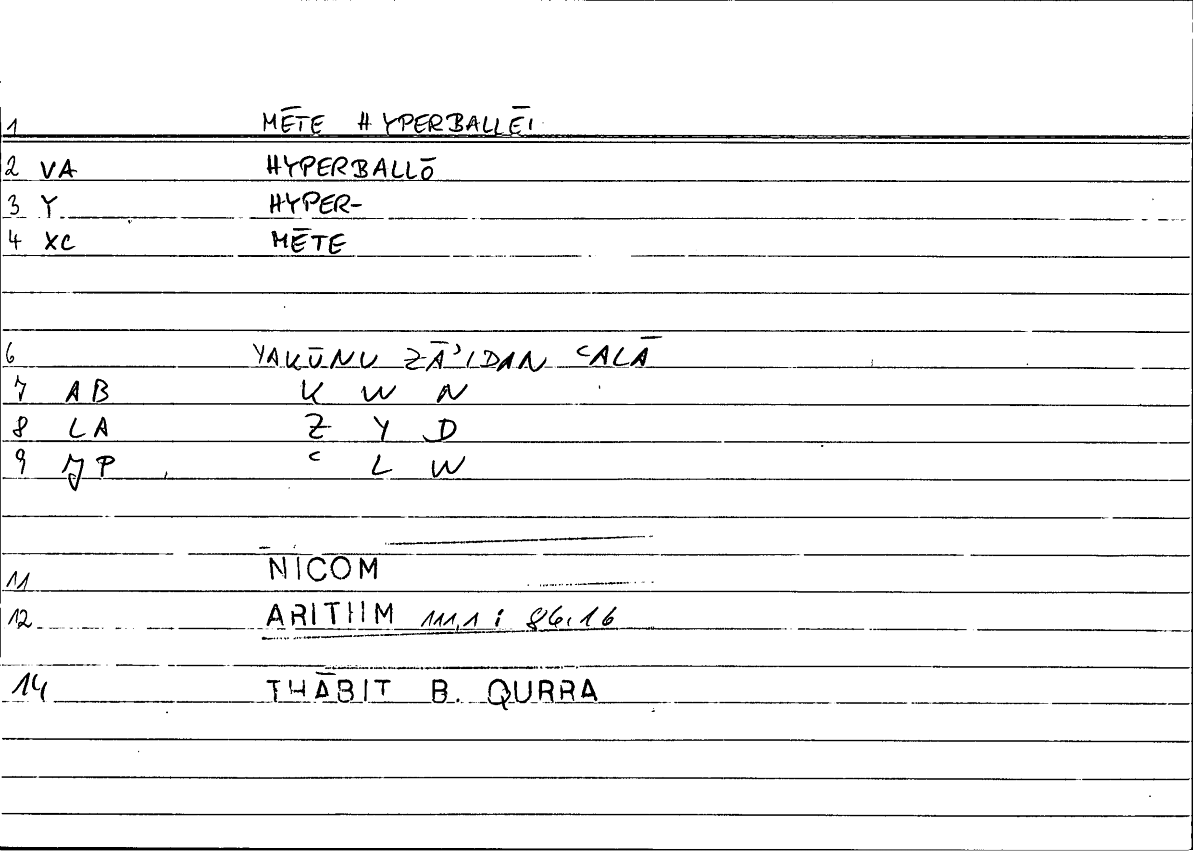 1 MĒTE HYPERBALLĒI
2 VA HYPERBALLŌ
3 Y HYPER-
4 XC MĒTE
6 YAKŪNU ZĀʾIDAN ʿALĀ
7 AB K W N
8 LA Z Y D
9 JP ʿ L W
11 NICOM
12 ARITHM 111,1 : 86.16
14 THĀBIT B. QURRA